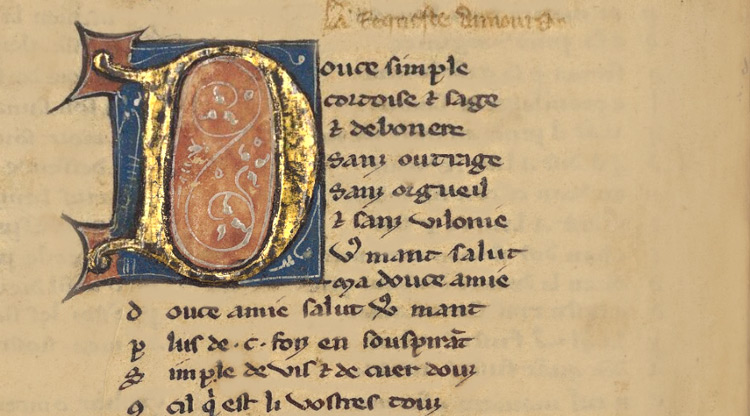 La requeste damours
Douce simple
cortoise ⁊ sage
⁊ debonere
sanz outrage
sanz orgueil
⁊ sanz vilonie
vo9 mant salut
ma douce amie
d ouce amie salut vo9 mant
p lus de · c · foiz en souspirāt
s imple de vis ⁊ de cuer douz
9 cil q̓ est li vostres touz